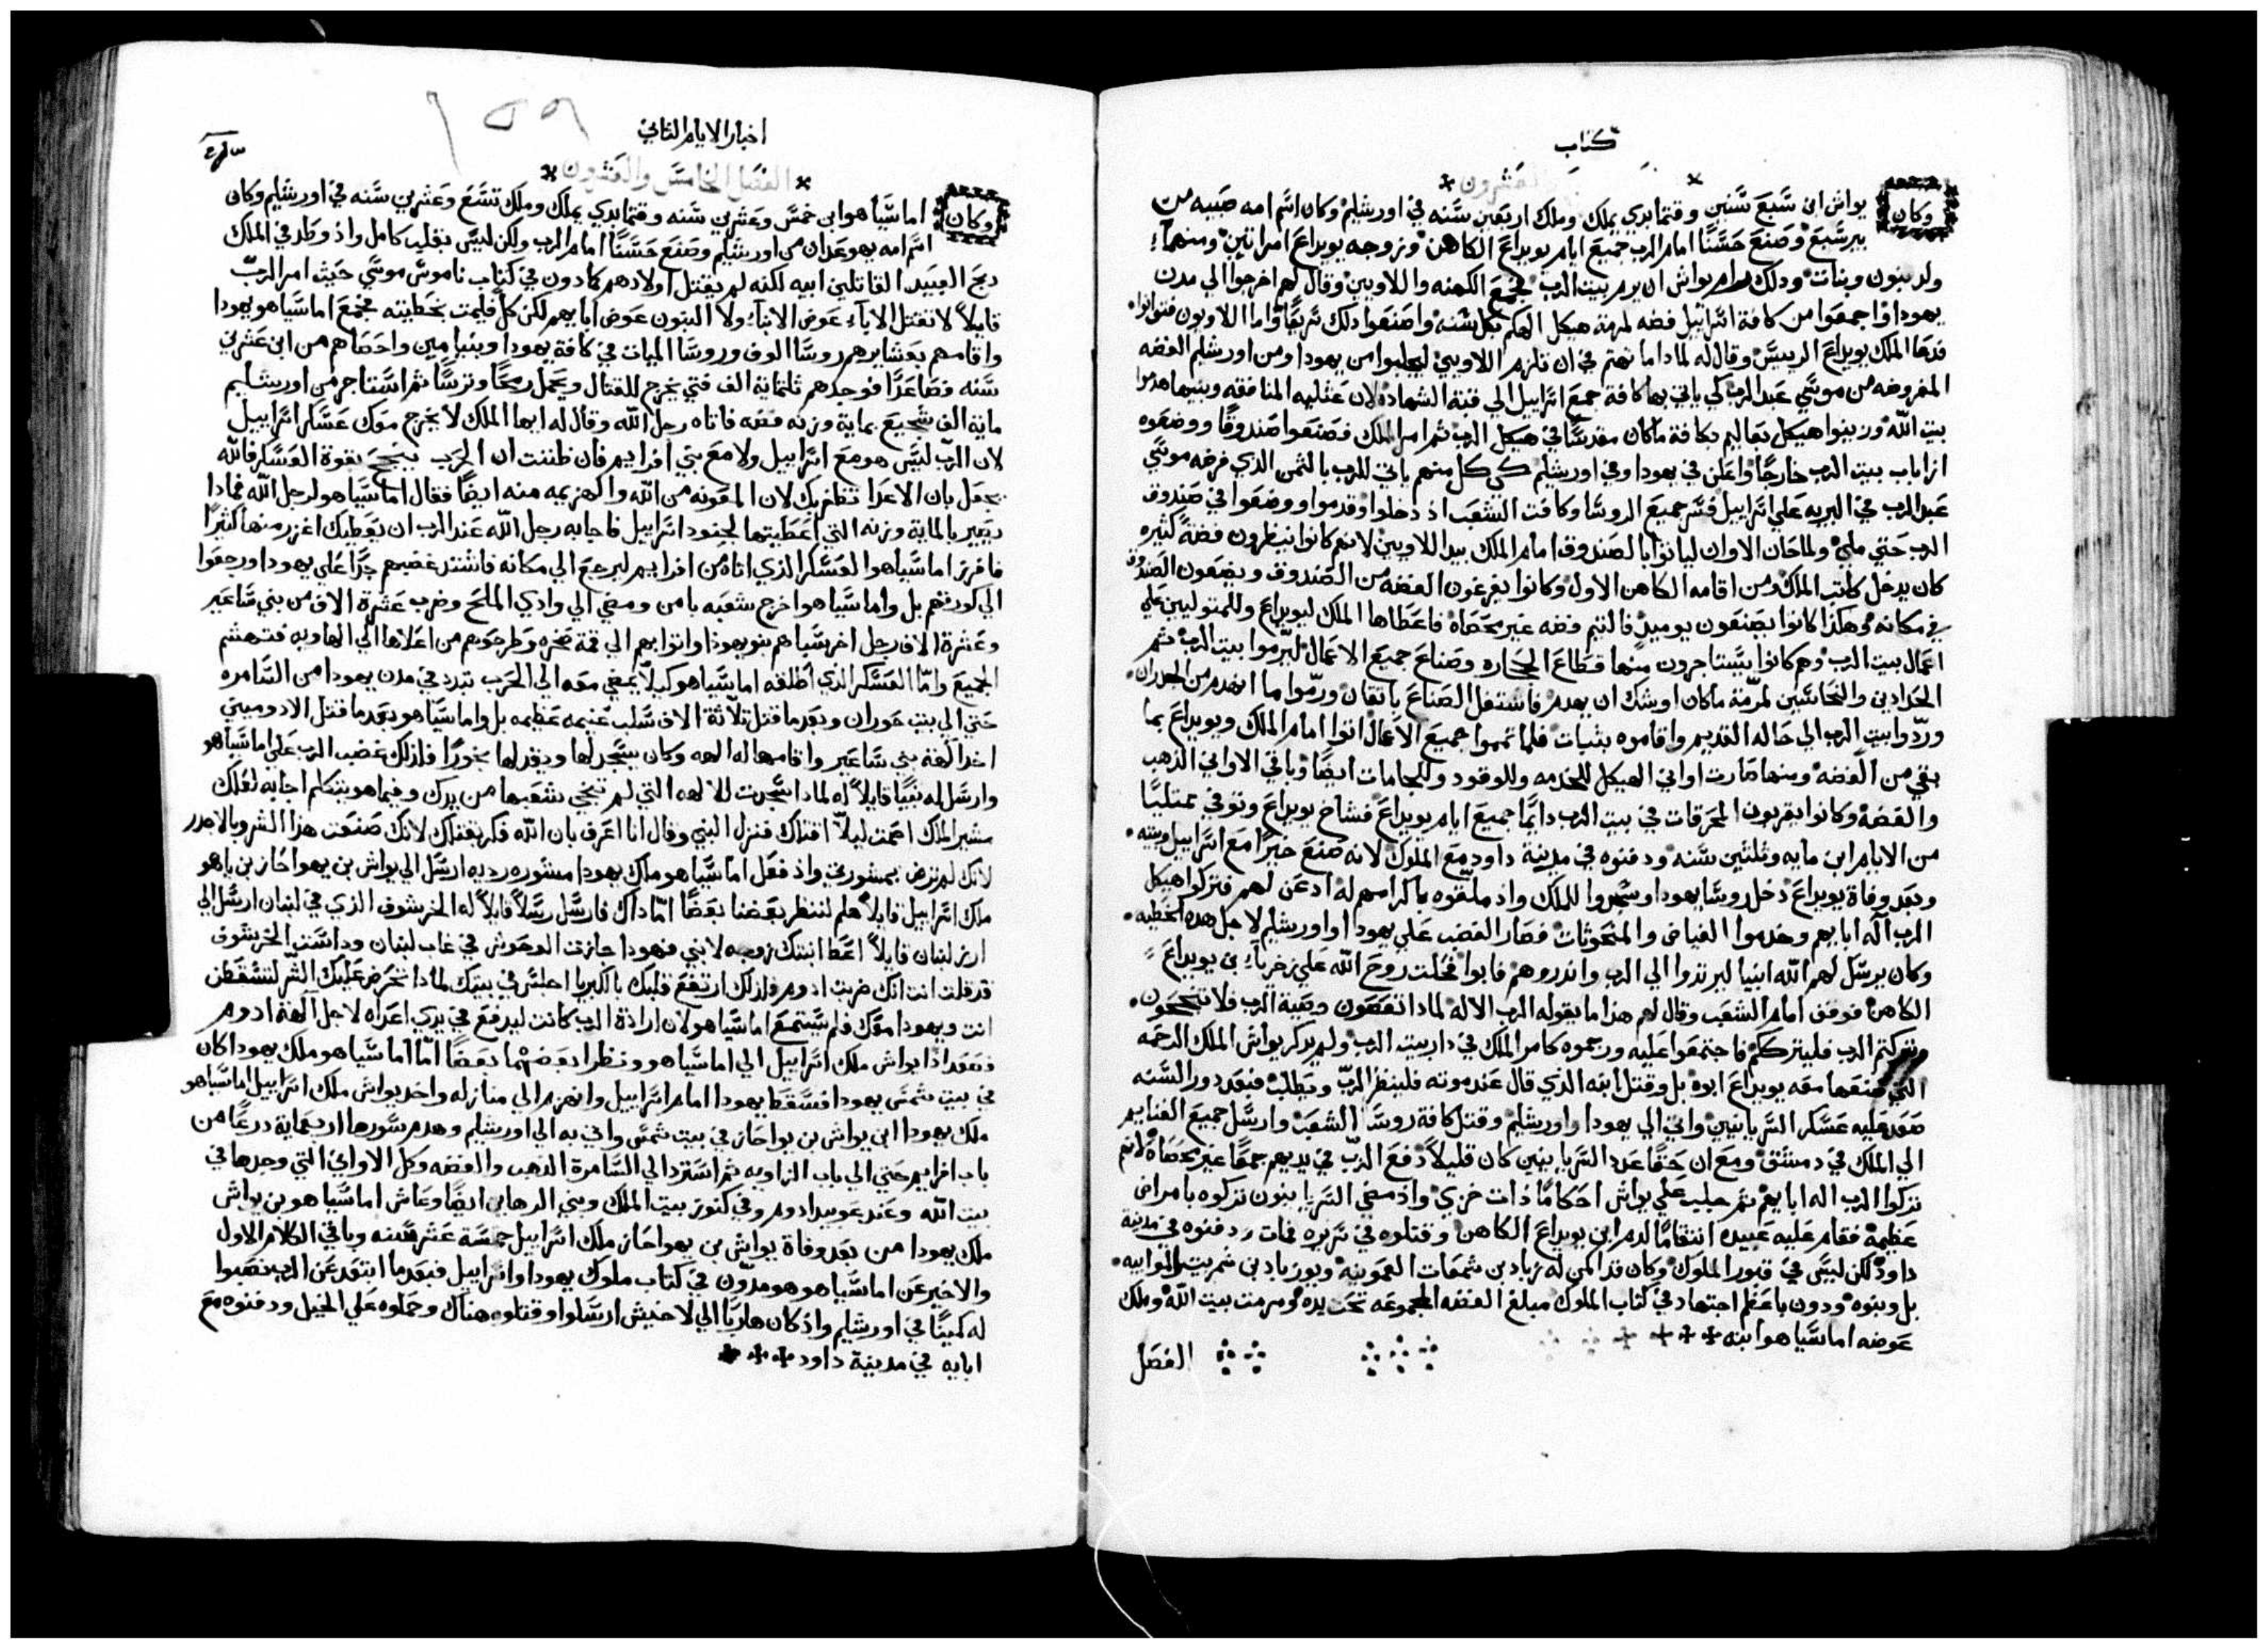 كتاب
العشرون
وكان يواش ابن سَبعَ سَنين وقتما بدي يملك وملك اربعين سَنه في اورشليم وكان اسَم امه ضبيه من
بيرسَبعَ وصنعَ حسَنًا امام الرب جميعَ ايام يويداعَ الكاهن وزوجه يويداعَ امراتين ومنهما
ولد بنون وبنات ودلك رام يواش ان يرم بيت الرب فجمعَ الكهنه واللاويين وقال لهم اخرجوا الي مدن
يهودا واجمعوا من كافة اسَراييل فضه لمرمة هيكل الهكم بكل سَنه واصنعوا دلك سَريعًا واما اللاويون فتوانوا
فدعا الملك يويداعَ الرييسَ وقال له لمادا ما تهتم في ان تلزم اللاويين ليجلبوا من يهودا ومن اورشليم الفضه
المفروضه من موسَي عبد الرب كي ياتي بها كافة جمعَ اسَراييل الي قبة الشهاده لان عثليه المنافقه وبنيها هدموا
بيت اللّه وزينوا هيكل بعاليم بكافة ما كان مقدسًا في هيكل الرب ثم امر الملك فصنعوا صندوقًا ووضعوه
ازا باب بيت الرب خارجًا واعلن في يهودا وفي اورشليم كي كل منهم ياتي للرب بالثمن الذي فرضه موسَي
عبد الرب في البريه علي اسَراييل فسَر جميعَ الروسَا وكافت الشعب اذ دخلوا وقدموا ووضعوا في صندوق
الرب حتي ملي ولما حان الاوان لياتوا بالصندوق امام الملك بيد اللاويين لانهم كانوا ينظرون فضةً كثيره
كان يدخل كاتب الملك ومن اقامه الكاهن الاول وكانوا يفرغون الفضه من الصندوق ويضعون الصندوق
في مكانه وهكذا كانوا يصنعون يوميد فالتيم فضه غير محصاه فاعطاها الملك ليويداعَ وللمتوليين علي
اعمال بيت الرب وهم كانوا يسَتاجرون منها قطاعَ الحجاره وصناعَ جميعَ الاعمال ليرّموا بيت الرب ثم
الحدادين والنحاسَين لمرّمة ما كان اوشك ان يهدم فاشتغل الصناعَ باتقان ورمّوا ما انهدم من الجدران
وردّوا بيت الرب الي حاله القديم واقاموه بثبات فلما تمموا جميعَ الاعمال اتوا امام الملك ويويداعَ بما
بقي من الفضه ومنها صارت اواني الهيكل للخدمه وللوقود والجامات ايضًا وباقي الاواني الذهب
والفضه وكانوا يقربون المحرقات في بيت الرب دايمًا جميعَ ايام يويداعَ فشاخ يويداعَ وتوفي ممتليًا
من الايام ابن مايه وثلثين سَنه ودفنوه في مدينة داود معَ الملوك لانه صنعَ خيرًا معَ اسَراييل وبيته
وبعد وفاة يويداعَ دخل روسَا يهودا وسَجدوا للملك واذ ملقوه باكرامهم له ادعن لهم فتركوا هيكل
الرب آله اباييهم وخدموا الغياض والمنحوتات فصار الغضب علي يهودا واورشليم لاجل هذه الخطيه
وكان يرسَل لهم اللّه انبيا ليرتدوا الي الرب واندروهم فابوا فحُلت روحَ اللّه علي زخريا بن يويداعَ
الكاهن فوقف امام الشعب وقال لهم هذا ما يقوله الرب الاله لمادا تعصون وصية الرب فلا تنجحون
وتركتم الرب فليترككم فاجتمعوا عليه ورجموه كامر الملك في دار بيت الرب ولم يدكر يواش الملك الرحمه
التي صنعها معه يويداعَ ابوه بل وقتل ابنه الذي قال عند موته فلينظر الربّ ويطلب فبعد دور السَنه
صعد عليه عسَكر السَريانيين واتي الي يهودا واورشليم وقتل كافة روسَا الشعب وارسَل جميعَ الغنايم
الي الملك في دمشق ومعَ ان حقًا عدد السَريانيين كان قليلًا دفعَ الربّ في يديهم جمعًا غير محصاه لانهم
تركوا الرب اله ابايهم ثم جلب علي يواش احكامًا ذات خزي واذ مضي السَريانيون تركوه بامراض
عظيمة فقام عليه عبيده انتقامًا لدم ابن يويداعَ الكاهن وقتلوه في سَريره فمات ودفنوه في مدينة
داود لكن ليسَ في قبور الملوك وكان قد اكمن له زباد بن شمعات العمونيه ويوزباد بن شمريت الموابيه
بل وبنوه ودون باعظم اجتهاد في كتاب الملوك مبلغ الفضه المجموعه تحت يده ومرمت بيت اللّه وملك
عوضه اماسَيا هو ابنه
الفصَل
اخبار الايام الثاني
١٥٩
الفصَل الخامسَ والعشرون
وكان اماسَيا هو ابن خمسَ وعشرين سَنه وقتما بدي يملك وملك تسَعَ وعشرين سَنه في اورشليم وكان
اسَم امه يهوعدان من اورشليم وصنعَ حسَنًا امام الرب ولكن ليسَ بقلب كامل واذ وطد في الملك
دبحَ العبيد القاتلين ابيه لكنه لم يقتل اولادهم كما دون في كتاب ناموسَ موسَي حيث امر الربّ
قايلًا لا تقتل الاباء عوض الابناء ولا البنون عوض ابايهم لكن كل فليمت بخطيته فجمعَ اماسَيا هو يهودا
واقامهم بعشايرهم روسَا الوف وروسَا الميات في كافة يهودا وبنيامين واحصاهم من ابن عشرين
سَنه فصاعدًا فوجدهم ثلثماية الف فتي يخرج للقتال ويحمل رمحًا وترسًا ثم اسَتاجر من اورشليم
ماية الف شجيعَ بماية وزنه فضه فاتاه رجل اللّه وقال له ايها الملك لا يخرج معك عسَكر اسَراييل
لان الربّ ليسَ هو معَ اسَراييل ولا معَ بني افراييم فان ظننت ان الحرب ينجحَ بقوة العسَكر فاللّه
يجعل بان الاعدا تظفر بك لان المعونه من اللّه والهزيمه منه ايضًا فقال اماسَيا هو لرجل اللّه فمادا
يصير بالماية وزنه التي اعطيتها لجنود اسَراييل فاجابه رجل اللّه عند الرب ان يعطيك اغزر منها كثيرًا
فافرز اماسَيا هو العسَكر الذي اتاه من افراييم ليرجعَ الي مكانه فاشتد غضبهم جدًا علي يهودا ورجعوا
الي كورتهم بل واما سَيا هو اخرج شعبه بامن ومضي الي وادي الملحَ وضرب عشرة الاف من بني سَاعير
وعشرة الاف رجل اخر سَباهم بنو يهودا واتوا بهم الي قمة صخره وطرحوهم من اعلاها الي الهاويه فتهشم
الجميعَ وامّا العسَكر الذي اطلقه اماسَيا هو كيلا يمضي معه الي الحرب تبدد في مدن يهودا من السَامره
حتي الي بيت حوران وبعد ما قتل ثلاثة الاف سَلب غنيمه عظيمه بل واماسَيا هو بعد ما قتل الادوميين
اخد آلهة بني سَاعير واقامها له الهه وكان يسَجد لها ويقد لها بخورًا فلذلك غضب الرب علي اماسَياهو
وارسَل له نبيًا قايلًا له لمادا سَجدت للالهه التي لم تنجي شعبها من يدك وفيما هو يتكلم اجابه لعلك
مشير الملك اصمت ليلّا اقتلك فنزل النبي وقال انا اعرف بان اللّه فكر بقتلك لانك صنعت هذا الشر وبالاحدر
لانك لم ترض بمشورتي واذ فعل اماسَيا هو ملك يهودا مشوره رديه ارسَل الي يواش بن يهواحاز بن ياهو
ملك اسَراييل قايلًا هلم لننظر بعضنا بعضًا امّا داك فارسَل رسَلًا قايلًا له الخرشوف الذي في لبنان ارسَل الي
ارز لبنان قايلًا اعط ابنتك زوجه لابني فهودا جازت الوحوش في غاب لبنان وداسَت الخرشوف
قد قلت انت انك ضربت ادوم فلذلك ارتفعَ قلبك بالكبريا اجلسَ في بيتك لمادا تحرض عليك الشر لتسَقط
انت ويهودا معك فلم يسَتمعَ اماسَيا هو لان ارادة الرب كانت ليدفعَ في يدي اعداه لاجل آلهة ادوم
فصعد اذا يواش ملك اسَراييل الي اماسَيا هو ونظرا بعضهما بعضًا امّا اماسَيا هو ملك يهودا كان
في بيت شمسَ يهودا فسَقط يهودا امام اسَراييل وانهزم الي منازله واخد يواش ملك اسَراييل اماسَياهو
ملك يهودا ابن يواش بن يواحاز في بيت شمسَ واتي به الي اورشليم وهدم سَورها اربعماية درعًا من
باب افراييم حتي الي باب الزاويه ثم اسَترد الي السَامرة الذهب والفضه وكل الاواني التي وجدها في
بيت اللّه وعند عوبيد ادوم وفي كنوز بيت الملك وبني الرهاين ايضًا وعاش اماسَيا هو بن يواش
ملك يهودا من بعد وفاة يواش بن يهواحاز ملك اسَراييل خمسَة عشر سَنه وباقي الكلام الاول
والاخير عن اماسَيا هو هو مدوّن في كتاب ملوك يهودا واسَراييل فبعد ما ابتعد عن الرب نصبوا
له كمينًا في اورشليم واذ كان هاربًا الي لاخيش ارسَلوا وقتلوه هناك وحملوه علي الخيل ودفنوه معَ
ابايه في مدينة داود